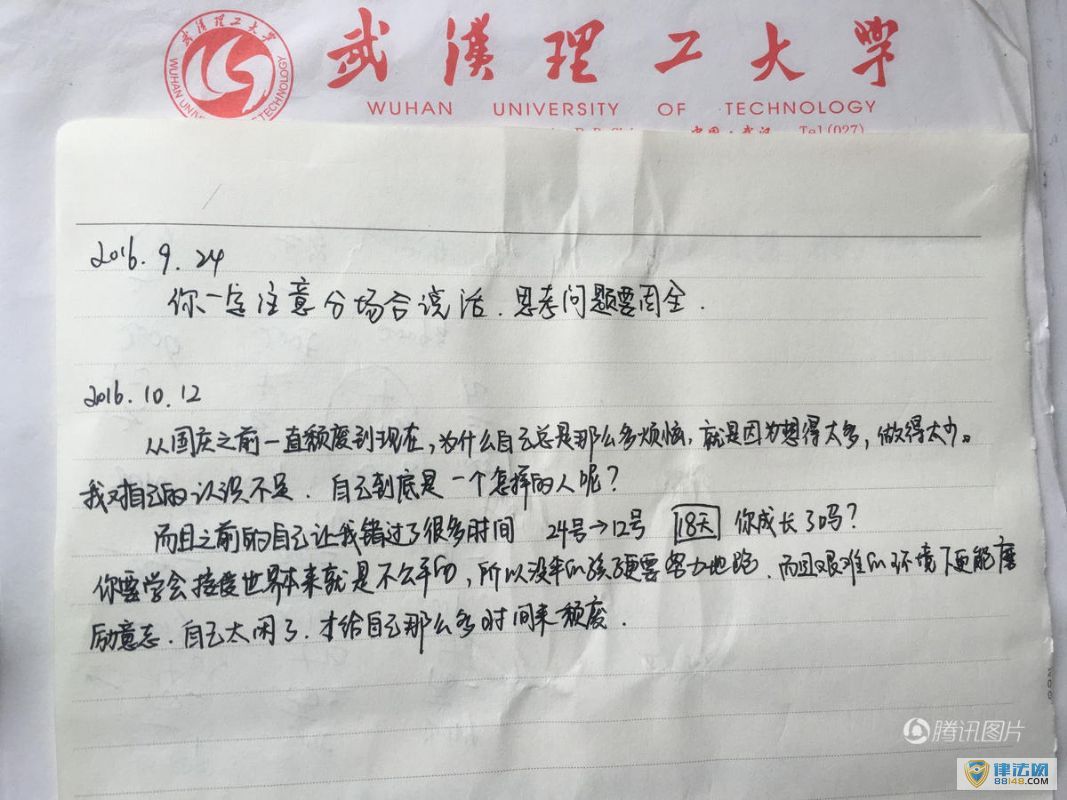 武漢理工大學
WUHAN UNIVERSITY OF TECHNOLOGY
武漢理工大學
WUHAN UN TECHNOLOGY
中国·武汉 Tel(027)
2016.9.24
你一定注意分场合说话.思考问题要周全.
2016.10.12
从国庆之前一直颓废到现在,为什么自己总是那么多烦恼,就是因为想得太多,做得太少。
我对自己的认识不足.自己到底是一个怎样的人呢?
而且之前的自己让我错过了很多时间 24号→12号 18天 你成长了吗?
你要学会接受世界本来就是不公平的,所以没伞的孩子更要努力地跑.而且艰难的环境下更能磨
励意志.自己太闲了.才给自己那么多时间来颓废.
腾讯图片
律法网
88148.com